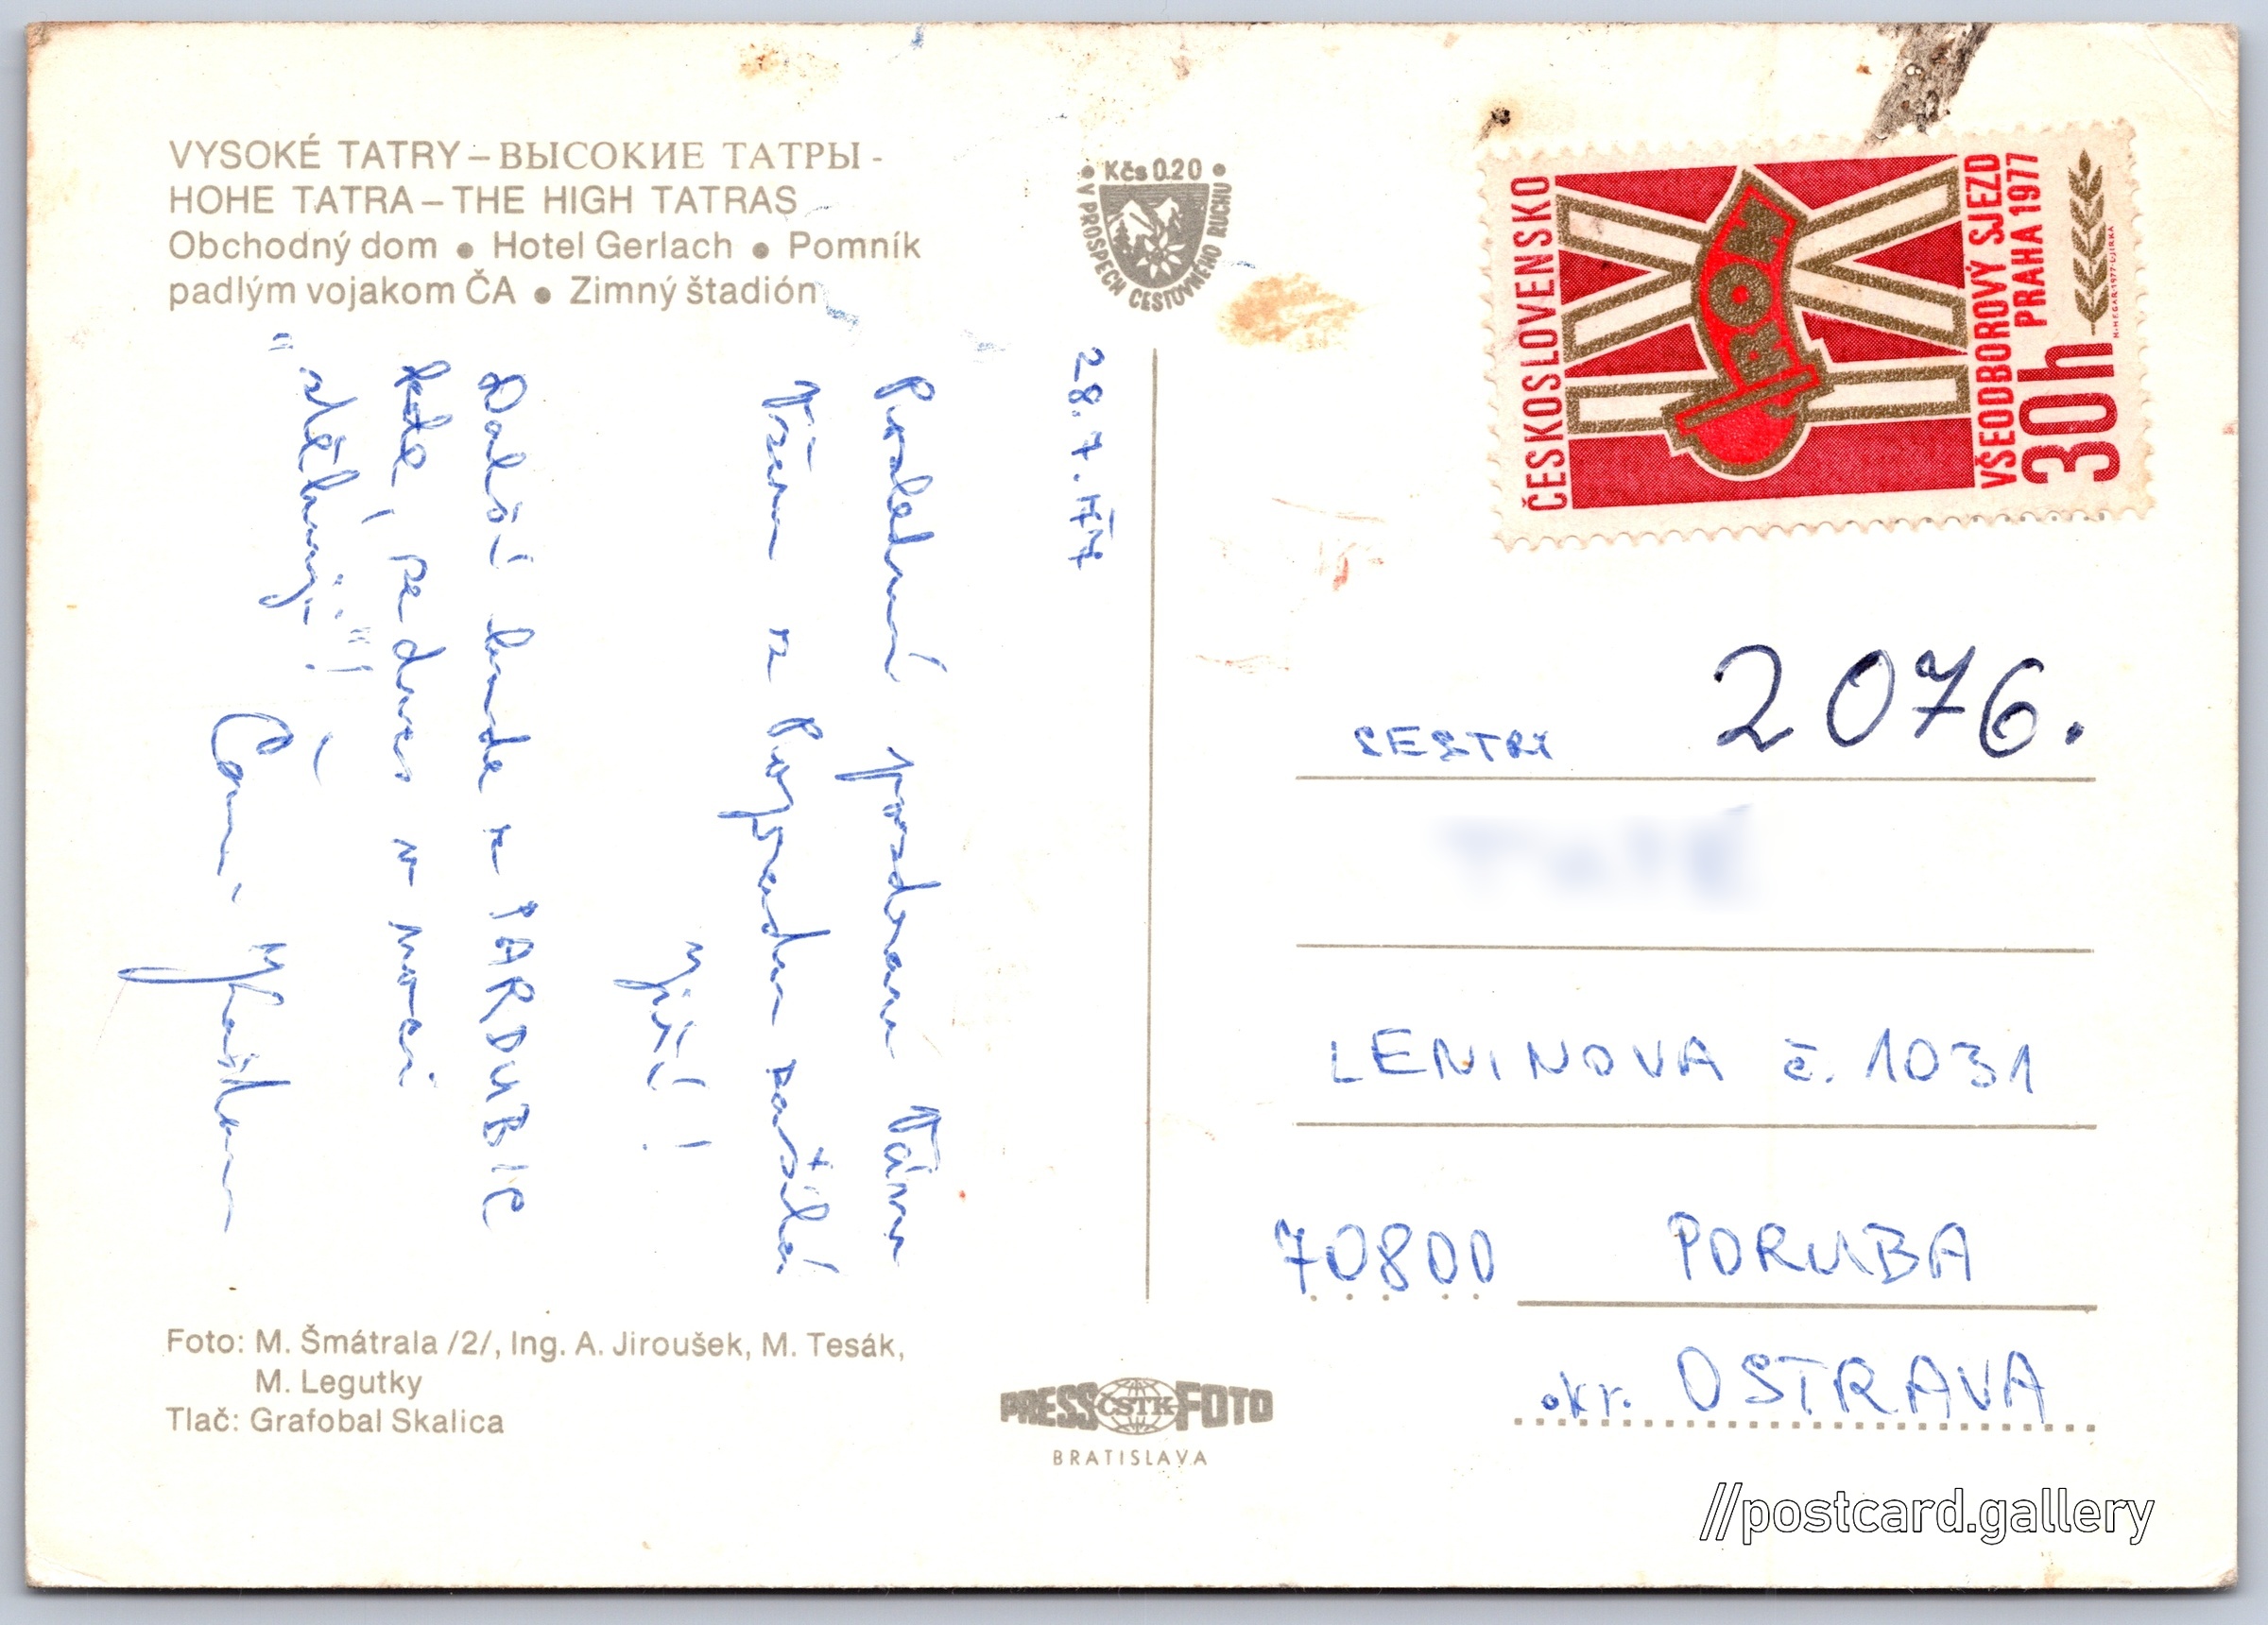 VYSOKÉ TATRY – ВЫСОКИЕ ТАТРЫ -
HOHE TATRA – THE HIGH TATRAS
Obchodný dom ● Hotel Gerlach ● Pomník
padlým vojakom ČA ● Zimný štadión
• Kčs 0.20 •
V PROSPECH CESTOVNÉHO RUCHU
28. 7. 1977
Poslední pozdrav Vám
Všem z Popradu zasílá
Další bude z PARDUBIC
kde, po dnes v noci
ČESKOSLOVENSKO
IX
VŠEODBOROVÝ SJEZD
PRAHA 1977
30h
2076.
SESTRY
LENINOVA č. 1031
70800 PORUBA
okr. OSTRAVA
Foto: M. Šmátrala /2/, Ing. A. Jiroušek, M. Tesák,
M. Legutky
Tlač: Grafobal Skalica
PRESS ČSTK FOTO
BRATISLAVA
//postcard.gallery